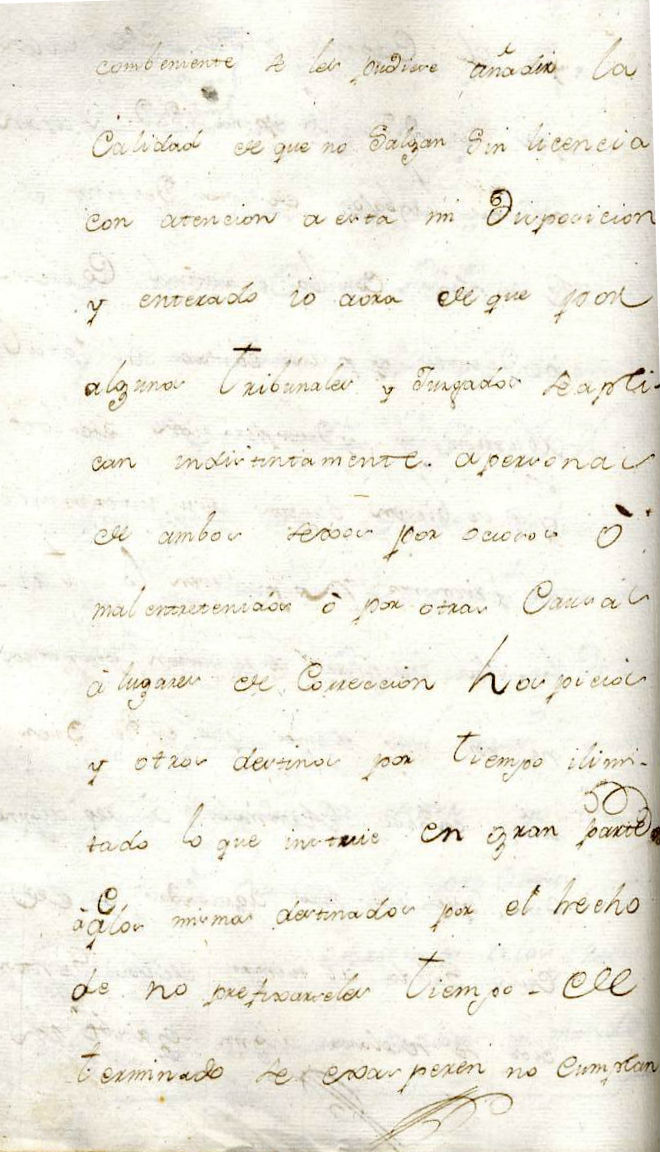 combeniente se les pudiere añadir la
Calidad de que no Salgan Sin licencia
con atencion a esta mi Disposicion
y enterado io aora de que por
algunos Tribunales y Jusgados se apli-
can indistintamente. a personas
de ambos sexos por ociosos ò
mal entretenidos ò por otras Causas
à lugares de Correccion hospicios
y otros destinos por tiempo ilimi-
tado lo que instruie en gran parte
à q̃ los mismos destinados por el hecho
de no prefixarseles tiempo de
terminado se exasperen no Cumplan